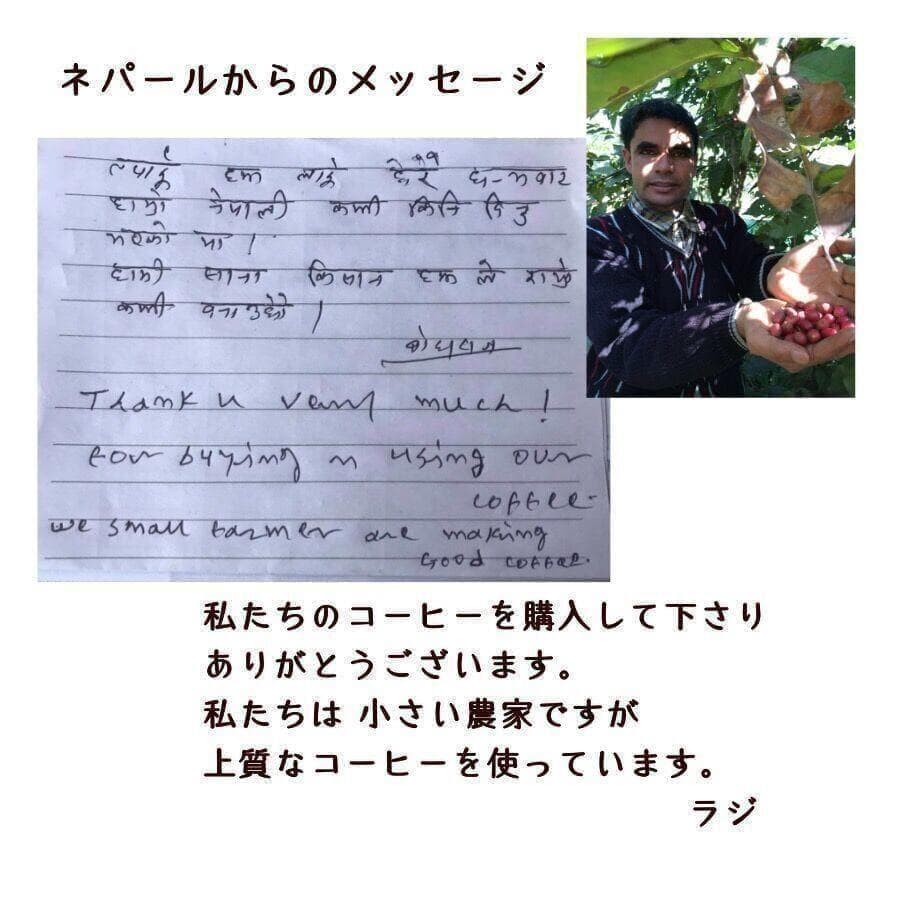 ネパールからのメッセージ
हामी नेपाली कफी किनि दिनु
हामी साना किसान हरू ले राम्रो
Thank u very much!
For buying n using our
coffee.
we small farmer are making
Good coffee.
私たちのコーヒーを購入して下さり
ありがとうございます。
私たちは 小さい農家ですが
上質なコーヒーを使っています。
ラジ